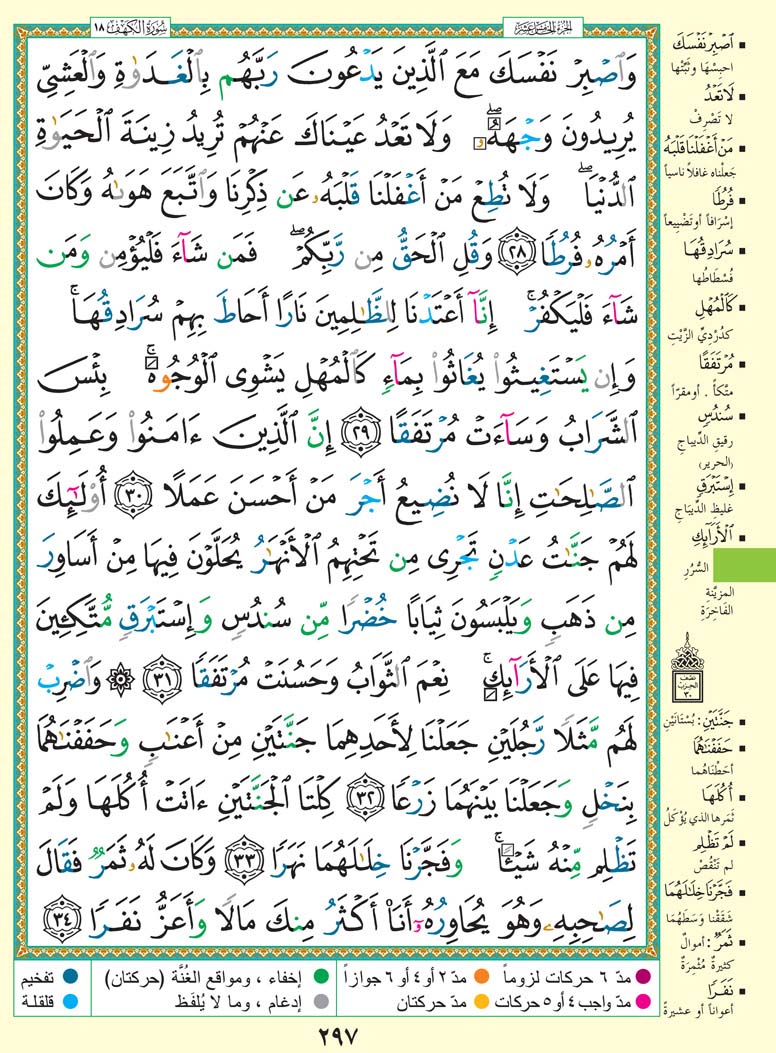 الجزء الخامس عشر
سورة الكهف ١٨
وَٱصْبِرْ نَفْسَكَ مَعَ ٱلَّذِينَ يَدْعُونَ رَبَّهُم بِٱلْغَدَوٰةِ وَٱلْعَشِىِّ
يُرِيدُونَ وَجْهَهُۥ ۖ وَلَا تَعْدُ عَيْنَاكَ عَنْهُمْ تُرِيدُ زِينَةَ ٱلْحَيَوٰةِ
ٱلدُّنْيَا ۖ وَلَا تُطِعْ مَنْ أَغْفَلْنَا قَلْبَهُۥ عَن ذِكْرِنَا وَٱتَّبَعَ هَوَىٰهُ وَكَانَ
أَمْرُهُۥ فُرُطًا ٢٨ وَقُلِ ٱلْحَقُّ مِن رَّبِّكُمْ ۖ فَمَن شَآءَ فَلْيُؤْمِن وَمَن
شَآءَ فَلْيَكْفُرْ ۚ إِنَّآ أَعْتَدْنَا لِلظَّٰلِمِينَ نَارًا أَحَاطَ بِهِمْ سُرَادِقُهَا ۚ
وَإِن يَسْتَغِيثُوا۟ يُغَاثُوا۟ بِمَآءٍ كَٱلْمُهْلِ يَشْوِى ٱلْوُجُوهَ ۚ بِئْسَ
ٱلشَّرَابُ وَسَآءَتْ مُرْتَفَقًا ٢٩ إِنَّ ٱلَّذِينَ ءَامَنُوا۟ وَعَمِلُوا۟
ٱلصَّٰلِحَٰتِ إِنَّا لَا نُضِيعُ أَجْرَ مَنْ أَحْسَنَ عَمَلًا ٣٠ أُو۟لَٰٓئِكَ
لَهُمْ جَنَّٰتُ عَدْنٍ تَجْرِى مِن تَحْتِهِمُ ٱلْأَنْهَٰرُ يُحَلَّوْنَ فِيهَا مِنْ أَسَاوِرَ
مِن ذَهَبٍ وَيَلْبَسُونَ ثِيَابًا خُضْرًا مِّن سُندُسٍ وَإِسْتَبْرَقٍ مُّتَّكِـِٔينَ
فِيهَا عَلَى ٱلْأَرَآئِكِ ۚ نِعْمَ ٱلثَّوَابُ وَحَسُنَتْ مُرْتَفَقًا ٣١ ۞ وَٱضْرِبْ
لَهُم مَّثَلًا رَّجُلَيْنِ جَعَلْنَا لِأَحَدِهِمَا جَنَّتَيْنِ مِنْ أَعْنَٰبٍ وَحَفَفْنَٰهُمَا
بِنَخْلٍ وَجَعَلْنَا بَيْنَهُمَا زَرْعًا ٣٢ كِلْتَا ٱلْجَنَّتَيْنِ ءَاتَتْ أُكُلَهَا وَلَمْ
تَظْلِم مِّنْهُ شَيْـًٔا ۚ وَفَجَّرْنَا خِلَٰلَهُمَا نَهَرًا ٣٣ وَكَانَ لَهُۥ ثَمَرٌ فَقَالَ
لِصَٰحِبِهِۦ وَهُوَ يُحَاوِرُهُۥٓ أَنَا۠ أَكْثَرُ مِنكَ مَالًا وَأَعَزُّ نَفَرًا ٣٤
▪ ٱصْبِرْ نَفْسَكَ
احبِسْهَا وثَبِّتْها
▪ لَا تَعْدُ
لا تَصْرِفْ
▪ مَنْ أَغْفَلْنَا قَلْبَهُ
جَعلْناه غافلاً ناسياً
▪ فُرُطًا
إسْرَافاً أو تَضْييعاً
▪ سُرَادِقُهَا
فُسْطَاطُها
▪ كَٱلْمُهْلِ
كدُرْدِيِّ الزَّيْتِ
▪ مُرْتَفَقًا
متَّكأً . أو مقرّاً
▪ سُنْدُسٍ
رقيقِ الدِّيباجِ
(الحرير)
▪ إِسْتَبْرَقٍ
غليظِ الدِّيبَاجِ
▪ ٱلْأَرَآئِكِ
السُّرُرِ
المزيَّنةِ
الفَاخِرَةِ
نصف
الحزب
٣٠
▪ جَنَّتَيْنِ: بُسْتَانَيْنِ
▪ حَفَفْنَٰهُمَا
أحَطْنَاهُما
▪ أُكُلَهَا
ثمَرها الذي يُؤْكَلُ
▪ لَمْ تَظْلِم
لم تَنْقُصْ
▪ فَجَّرْنَا خِلَٰلَهُمَا
شقَقْنا وَسَطَهُما
▪ ثَمَرٌ: أموالٌ
كثيرةٌ مُثْمِرَةٌ
▪ نَفَرًا
أعواناً أو عشيرةً
مدّ ٦ حركات لزوماً
مدّ ٢ أو ٤ أو ٦ جوازاً
إخفاء ، ومواقع الغُنَّة (حركتان)
تفخيم
مدّ واجب ٤ أو ٥ حركات
مدّ حركتان
إدغام ، وما لا يُلفَظ
قلقلة
٢٩٧